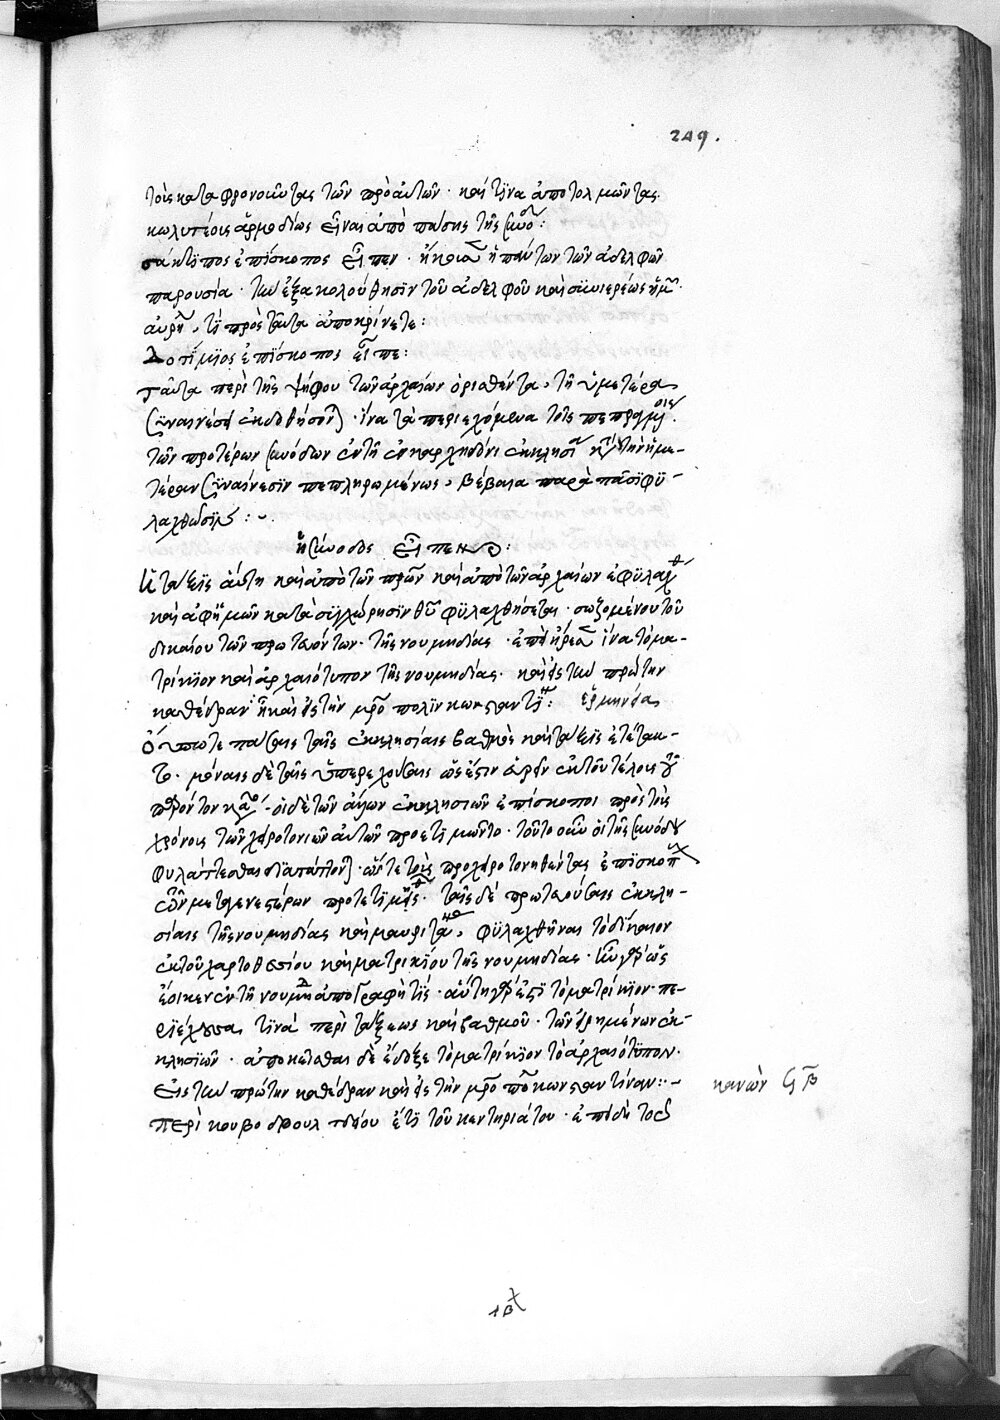 249.
τοὺς καταφρονοῦντας τῶν πρὸ αὐτῶν· καί τινα ἀποτολμῶντας
κωλυτέους ἁρμοδίως εἶναι ἀπὸ πάσης τῆς συνόδ:
σάντιππος ἐπίσκοπος εἶπεν· ἡ πάντων τῶν ἀδελφῶν
παρουσία· τὴν ἐξακολούθησιν τοῦ ἀδελφοῦ καὶ συνιερέως ἡμ
αὐρη, τί πρὸς ταῦτα ἀποκρίνετε:
Δοτίμιος ἐπίσκοπος εἶπε:
Ταῦτα περὶ τῆς ψήφου τῶν ἀρχαίων ὁρισθέντα, τῇ ὑμετέρα
συναινέσει ἐκδοθήσον· ἵνα τὰ περιεχόμενα τοῖς πεπραγμ
τῶν προτέρων συνόδων ἐν τῇ ἐν καρχηδόνι ἐκκλησί τὴν ἡμε-
τέραν συναίνεσιν πεπληρωμένως, βέβαια παρὰ πᾶσι φυ-
λαχθῶσιν:
ἡ σύνοδος εἶπεν:
Ἡ τάξις αὕτη καὶ ἀπὸ τῶν πρων καὶ ἀπὸ τῶν ἀρχαίων ἐφυλαχθ
καὶ ἀφ' ἡμῶν κατὰ συγχώρησιν θυ φυλαχθήσεται· σωζομένου τοῦ
δικαίου τῶν πρωτευόντων τῆς νουμηδίας· ἵνα τὸ μα-
τρίκιον καὶ ἀρχαιότυπον τῆς νουμηδίας· καὶ εἰς τὴν πρώτην
καθέδραν ἢ καὶ εἰς τὴν μρο πόλιν κωνσταντι: ἑρμηνεία
Οὔπω τε πάσαις ταῖς ἐκκλησίαις βαθμὸς καὶ τάξις ἐτέτακ-
το· μόναις δὲ ταῖς ὑπερεχούσαις ὥς ἐστιν εὑρεῖν ἐκ τοῦ τέλους
οἱ δὲ τῶν ἄλλων ἐκκλησιῶν ἐπίσκοποι πρὸς τοὺς
χρόνους τῶν χειροτονιῶν αὐτῶν προετιμῶντο· τοῦτο οὖν οἱ τῆς συνόδου
φυλάττεσθαι διαπάττον· ὥστε τοὺς προχειροτονηθέντας ἐπισκοπ
τῶν μεταγενεστέρων προτετιμῆσθ· ταῖς δὲ πρωτευούσαις ἐκκλη-
σίαις τῆς νουμηδίας καὶ μαυριτα, φυλαχθῆναι τὸ δίκαιον
ἐκ τοῦ χαρτοθεσίου καὶ ματρικίου τῆς νουμηδίας· ἦν γὰρ ὡς
ἔοικεν ἐν τῇ νουμηδ ἀπογραφή τις· αὕτη γάρ ἐστι τὸ ματρίκιον· πε-
ριέχουσα τινὰ περὶ τάξεως καὶ βαθμοῦ· τῶν εἰρημένων ἐκ-
κλησιῶν· ἀποκεῖσθαι δὲ ἔδοξε τὸ ματρίκιον τὸ ἀρχαιότυπον·
εἰς τὴν πρώτην καθέδραν καὶ εἰς τὴν μρο πο κωνσταντίναν:-
κανὼν
Περὶ κουβοδβουλτδέου ἔτι τοῦ κεντηριάτου· ἐπειδὴ τοῦ